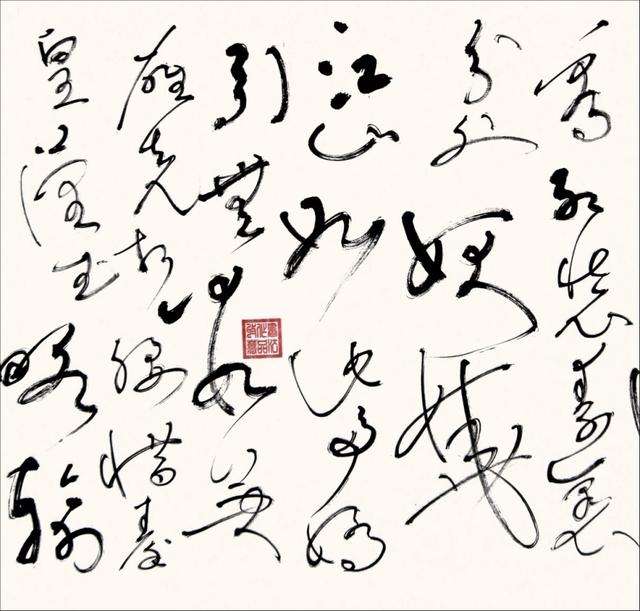 看紅裝素裹
分外妖嬈
江山如此多嬌
引無數英
雄競折腰惜秦
皇漢武略輸